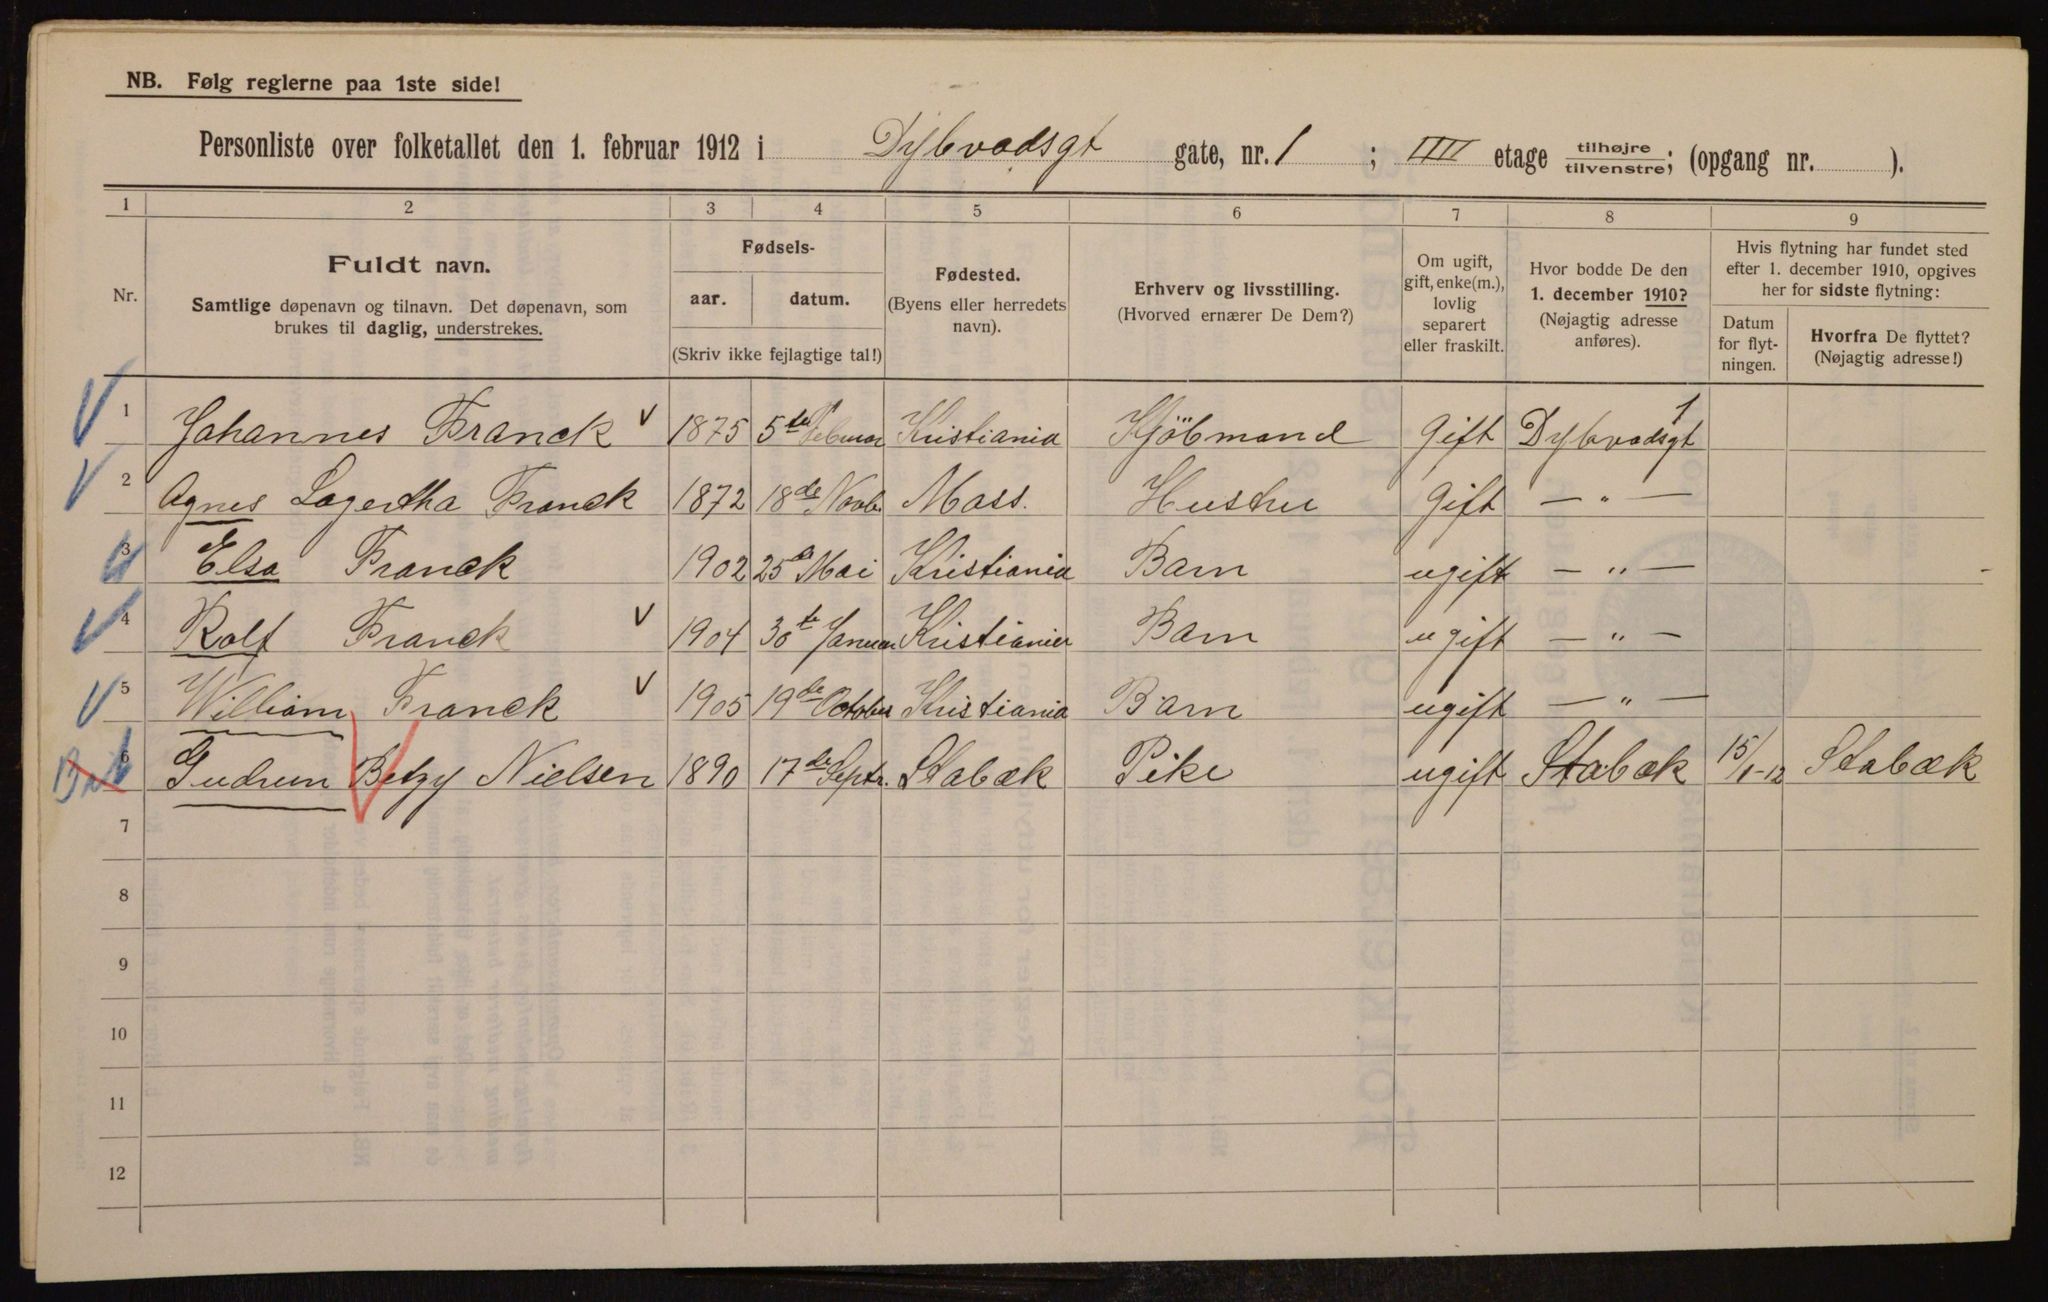 NB. Følg reglerne paa 1ste side!
Personliste over folketallet den 1. februar 1912 i Dybvadsgt gate, nr. 1 ; IIII etage tilhøjre/tilvenstre; (opgang nr. ).
1 2 3 4 5 6 7 8 9
Nr.
Fuldt navn.
Samtlige døpenavn og tilnavn. Det døpenavn, som
brukes til daglig, understrekes.
Fødsels-
aar. datum.
(Skriv ikke fejlagtige tal!)
Fødested.
(Byens eller herredets
navn).
Erhverv og livsstilling.
(Hvorved ernærer De Dem?)
Om ugift,
gift, enke(m.),
lovlig
separert
eller fraskilt.
Hvor bodde De den
1. december 1910?
(Nøjagtig adresse
anføres).
Hvis flytning har fundet sted
efter 1. december 1910, opgives
her for sidste flytning:
Datum
for flyt-
ningen.
Hvorfra De flyttet?
(Nøjagtig adresse!)
1 Johannes Franck 1875 5te Februar Kristiania Kjöbmand Gift Dybvadsgt 1
2 Agnes Lagertha Franck 1872 18de Novb. Moss. Hustru Gift — " —
3 Elsa Franck 1902 25de Mai Kristiania Barn ugift — " —
4 Rolf Franck 1904 30te Januar Kristiania Barn ugift — " —
5 William Franck 1905 19de October Kristiania Barn ugift — " —
6 Gudrun Betzy Nielsen 1890 17de Septr. Stabæk Pike ugift Stabæk 15/1-12 Stabæk
7
8
9
10
11
12